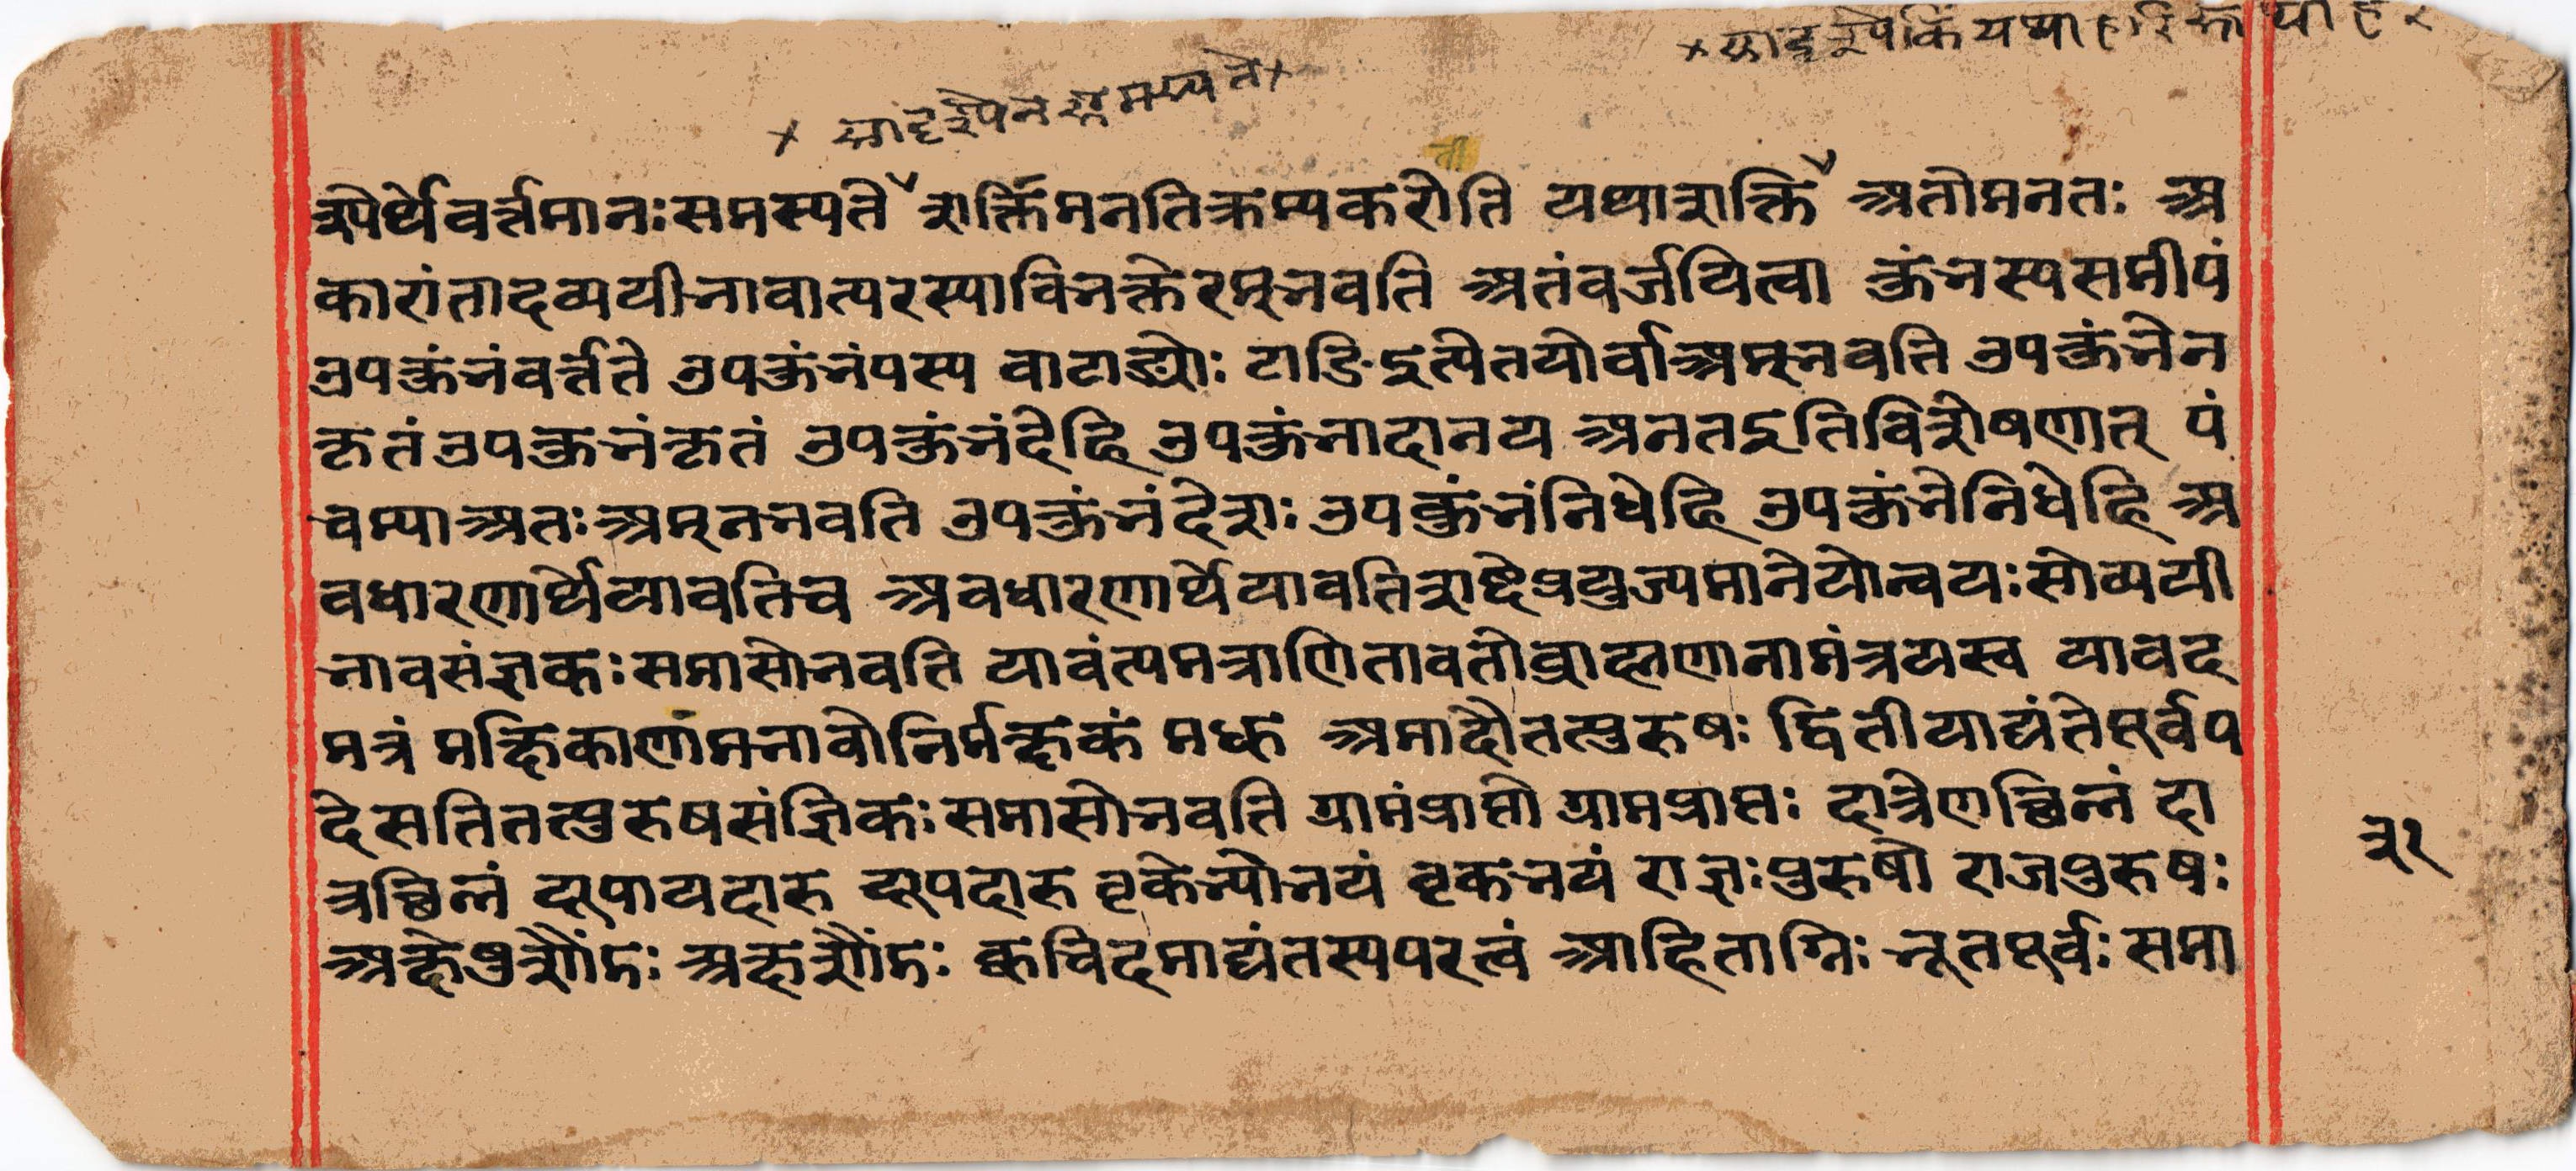 यादृरूपेकिंयथाहरि
सादृश्येनसमस्यते
रूपेर्थेवर्त्तमानःसमस्यते शक्तिमनतिक्रम्यकरोति यथाशक्ति अतोमनतः अ
कारांतादव्ययीभावात्परस्याविभक्तेरम्भवति अतंवर्जयित्वा कुंभस्यसमीपं
उपकुंभंवर्त्तते उपकुंभंपस्य वाटाङ्योः टाङिइत्येतयोर्वाअम्भवति उपकुंभेन
कृतंउपकुभंकृतं उपकुंभंदेहि उपकुंभादानय अनतइतिविशेषणात् पं
चम्याअतःअम्नभवति उपकुंभंदेशः उपकुंभंनिधेहि उपकुंभेनिधेहि अ
वधारणार्थेयावतिच अवधारणार्थेयावतिशब्देप्रयुज्यमानेयोन्वयःसोव्ययी
भावसंज्ञकःसमासोभवति यावंत्यमत्राणितावतोब्राह्मणानामंत्रयस्व यावद
मत्रं मक्षिकाणामभावोनिर्मक्षिकं मध्ये अमादौतत्पुरुषः द्वितीयाद्यंतेपूर्वप
देसतितत्पुरुषसंज्ञिकःसमासोभवति ग्रामंप्राप्तो ग्रामप्राप्तः दात्रेणछिन्नं दा
त्रछिन्नं यूपायदारु यूपदारु वृकेभ्योभयं वृकभयं राज्ञःपुरुषो राजपुरुषः
अक्षेषुशौंडः अक्षशौंडः क्वचिदमाद्यंतस्यपरत्वं आहिताग्निः भूतपूर्वः समा
३१